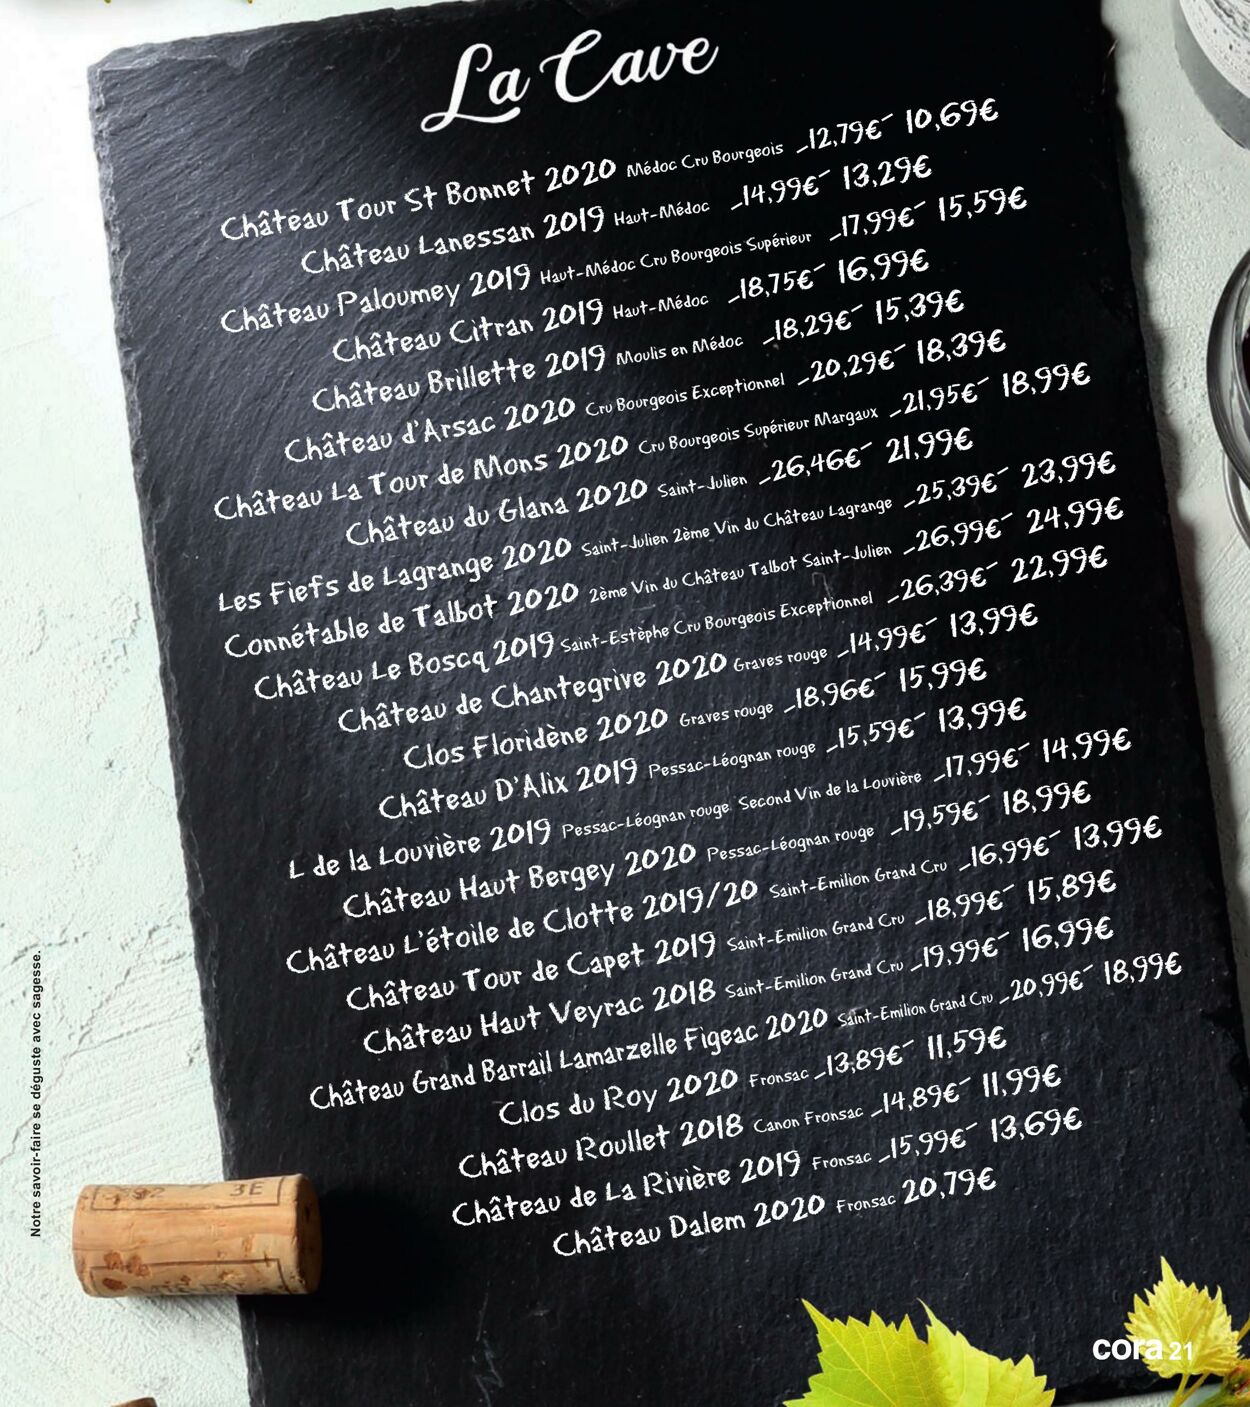 La Cave
Château Tour St Bonnet 2020 Médoc Cru Bourgeois 12,79€ 10,69€
Château Lanessan 2019 Haut-Médoc 14,99€ 13,29€
Château Paloumey 2019 Haut-Médoc Cru Bourgeois Supérieur 17,99€ 15,59€
Château Citran 2019 Haut-Médoc 18,75€ 16,99€
Château Brillette 2019 Moulis en Médoc 18,29€ 15,39€
Château d'Arsac 2020 Cru Bourgeois Exceptionnel 20,29€ 18,39€
Château La Tour de Mons 2020 Cru Bourgeois Supérieur Margaux 21,95€ 18,99€
Château du Glana 2020 Saint-Julien 26,46€ 21,99€
Les Fiefs de Lagrange 2020 Saint-Julien 2ème Vin du Château Lagrange 25,39€ 23,99€
Connétable de Talbot 2020 2ème Vin du Château Talbot Saint-Julien 26,99€ 24,99€
Château Le Boscq 2019 Saint-Estèphe Cru Bourgeois Exceptionnel 26,39€ 22,99€
Château de Chantegrive 2020 Graves rouge 14,99€ 13,99€
Clos Floridène 2020 Graves rouge 18,96€ 15,99€
Château D'Alix 2019 Pessac-Léognan rouge 15,59€ 13,99€
L de la Louvière 2019 Pessac-Léognan rouge Second Vin de la Louvière 17,99€ 14,99€
Château Haut Bergey 2020 Pessac-Léognan rouge 19,59€ 18,99€
Château L'étoile de Clotte 2019/20 Saint-Emilion Grand Cru 16,99€ 13,99€
Château Tour de Capet 2019 Saint-Emilion Grand Cru 18,99€ 15,89€
Château Haut Veyrac 2018 Saint-Emilion Grand Cru 19,99€ 16,99€
Château Grand Barrail Lamarzelle Figeac 2020 Saint-Emilion Grand Cru 20,99€ 18,99€
Clos du Roy 2020 Fronsac 13,89€ 11,59€
Château Roullet 2018 Canon Fronsac 14,89€ 11,99€
Château de La Rivière 2019 Fronsac 15,99€ 13,69€
Château Dalem 2020 Fronsac 20,79€
Notre savoir-faire se déguste avec sagesse.
3E
cora 21